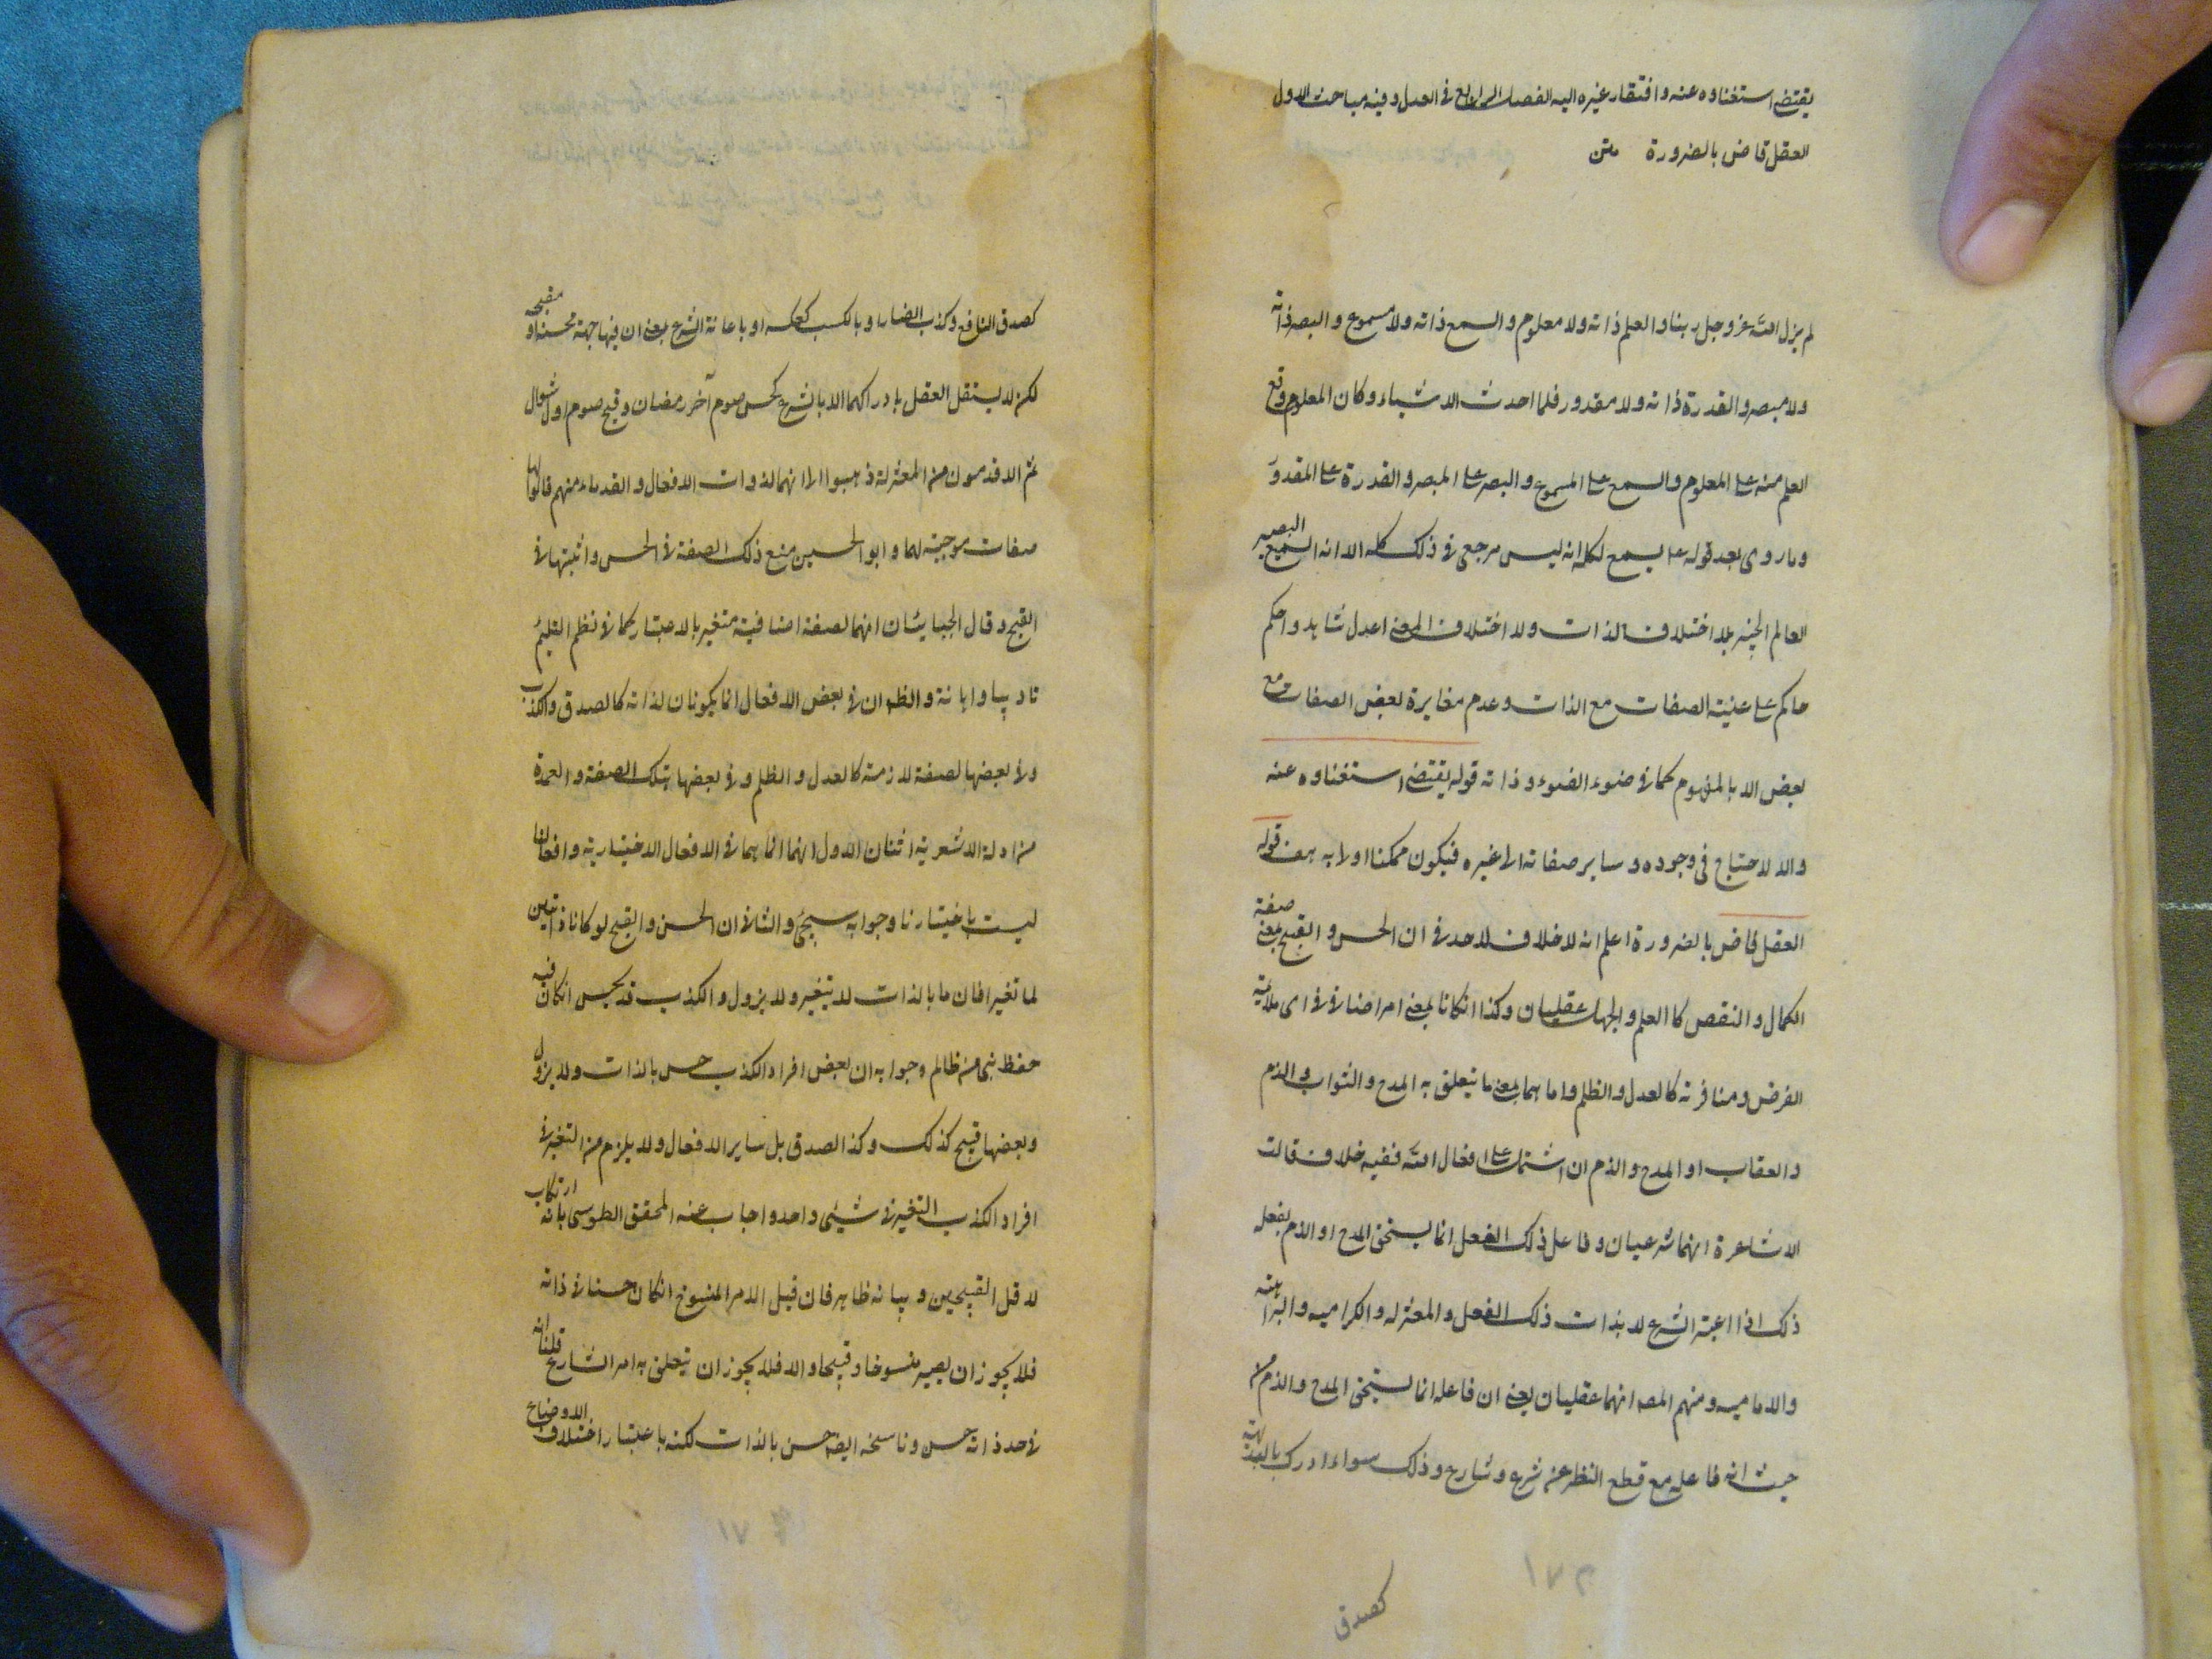 يقتضى استغناوه عنه وافتقار غيره اليه الفصل الرابع فى العدل وفيه مباحث الاول
العقل قاض بالضرورة متن
لم يزل الله عز وجل ربنا والعلم ذاته ولا معلوم والسمع ذاته ولا مسموع والبصر ذاته
ولا مبصر والقدرة ذاته ولا مقدور فلما احدث الاشياء وكان المعلوم وقع
العلم منه على المعلوم والسمع على المسموع والبصر على المبصر والقدرة على المقدور
وما روى بعد قوله ع يسمع لكله انه ليس مرجعى فى ذلك كله الا انه السميع البصير
العالم الخبير بلا اختلاف الذات ولا اختلاف المعنى اعدل شاهد واحكم
حاكم على عينية الصفات مع الذات وعدم مغايرة بعض الصفات مع
بعض الا بالمفهوم كما فى ضوء الضوء وذاته قوله يقتضى استغناوه عنه
والا لاحتاج فى وجوده وساير صفاته الى غيره فيكون ممكنا اولا به هف قوله
العقل قاض بالضرورة اعلم انه لا خلاف لاحد فى ان الحسن والقبح بمعنى صفة
الكمال والنقص كالعلم والجهل عقليان وكذا ان كانا بمعنى امر اضافى اى ملايمة
الغرض ومنافرته كالعدل والظلم واما هما بمعنى ما يتعلق به المدح والثواب والذم
والعقاب او المدح والذم ان اشتمل على افعال الله ففيه خلاف قالت
الاشاعرة انهما شرعيان وفاعل ذلك الفعل انما يستحق المدح او الذم بفعله
ذلك اذا اعتبر الشرع لا بذات ذلك الفعل والمعتزله والكراميه والبراهمة
والاماميه ومنهم المصـ انهما عقليان يعنى ان فاعله انما يستحق المدح والذم من
حيث انه فاعله مع قطع النظر عن شرع وشارع وذلك سواء ادرك بالبديهة
كصدق
١٧٢
كصدق النافع وكذب الضار او بالكسب كعكسه او باعانة الشرع بمعنى ان فيها جهة محسنة او مقبحة
لكن لا يستقل العقل بادراكهما الا بالشرع كحسن صوم آخر رمضان وقبح صوم اول شوال
ثم الاقدمون من المعتزلة ذهبوا الى انهما لذوات الافعال والقدماء منهم قالوا لها
صفات موجبة لهما وابو الحسين منع ذلك الصفة فى الحسن واثبتها فى
القبح وقال الجبايئان انهما لصفة اضافية متغير بالاعتبار كما فى نظم اليتيم
تاديبا واهانة والظ ان فى بعض الافعال انما يكونان لذاته كالصدق والكذب
وفى بعضها لصفة لازمة كالعدل والظلم وفى بعضها بتلك الصفة والعمدة
من ادلة الاشعرية اثنان الاول انهما انما هما فى الافعال الاختيارية وافعالنا
ليست باختيارنا وجوابه سيجئ والثانى ان الحسن والقبح لو كانا ذاتيين
لما تغيرا فان ما بالذات لا يتغير ولا يزول والكذب قد يحسن ان كان فيه
حفظ نبى من ظالم وجوابه ان بعض افراد الكذب حسن بالذات ولا يزول
وبعضها قبيح كذلك وكذا الصدق بل ساير الافعال ولا يلزم من التغير فى
افراد الكذب التغير فى شيئى واحد واجاب عنه المحقق الطوسى بانه ارتكاب
لاقل القبيحين وبيانه ظاهر فان قيل الامر المنسوخ ان كان حسنا فى ذاته
فلا يجوز ان يصير منسوخا وقبيحا والا فلا يجوز ان يتعلق به امر الشارع قلنا انه
فى حد ذاته حسن وناسخه ايضا حسن بالذات لكنه باعتبار اختلاف الاوضاع